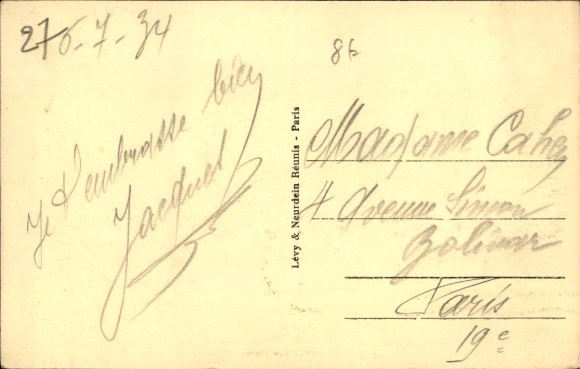 276-7-34
86
Je t'embrasse bien
Jacques
Lévy & Neurdein Réunis - Paris
Madame Cahen
4 Avenue Simon
Bolivar
Paris
19e